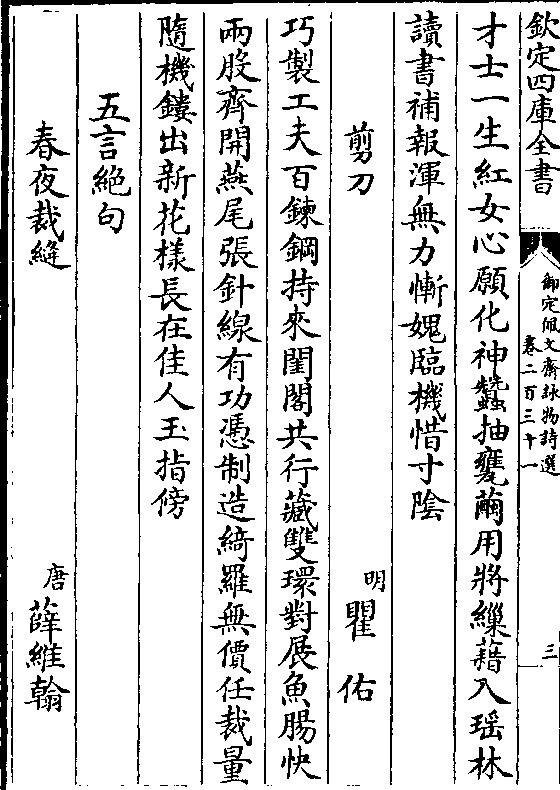 欽定四庫全書
御定佩文齋詠物詩選
卷二百三十一
三
才士一生紅女心願化神蠶抽甕繭用將繅藉入瑶林
讀書補報渾無力慚媿臨機惜寸陰
剪刀
明
瞿佑
巧製工夫百鍊鋼持來閨閣共行藏雙環對展魚腸快
兩股齊開燕尾張針線有功憑制造綺羅無價任裁量
隨機鏤出新花樣長在佳人玉指傍
五言絶句
春夜裁縫
唐
薛維翰